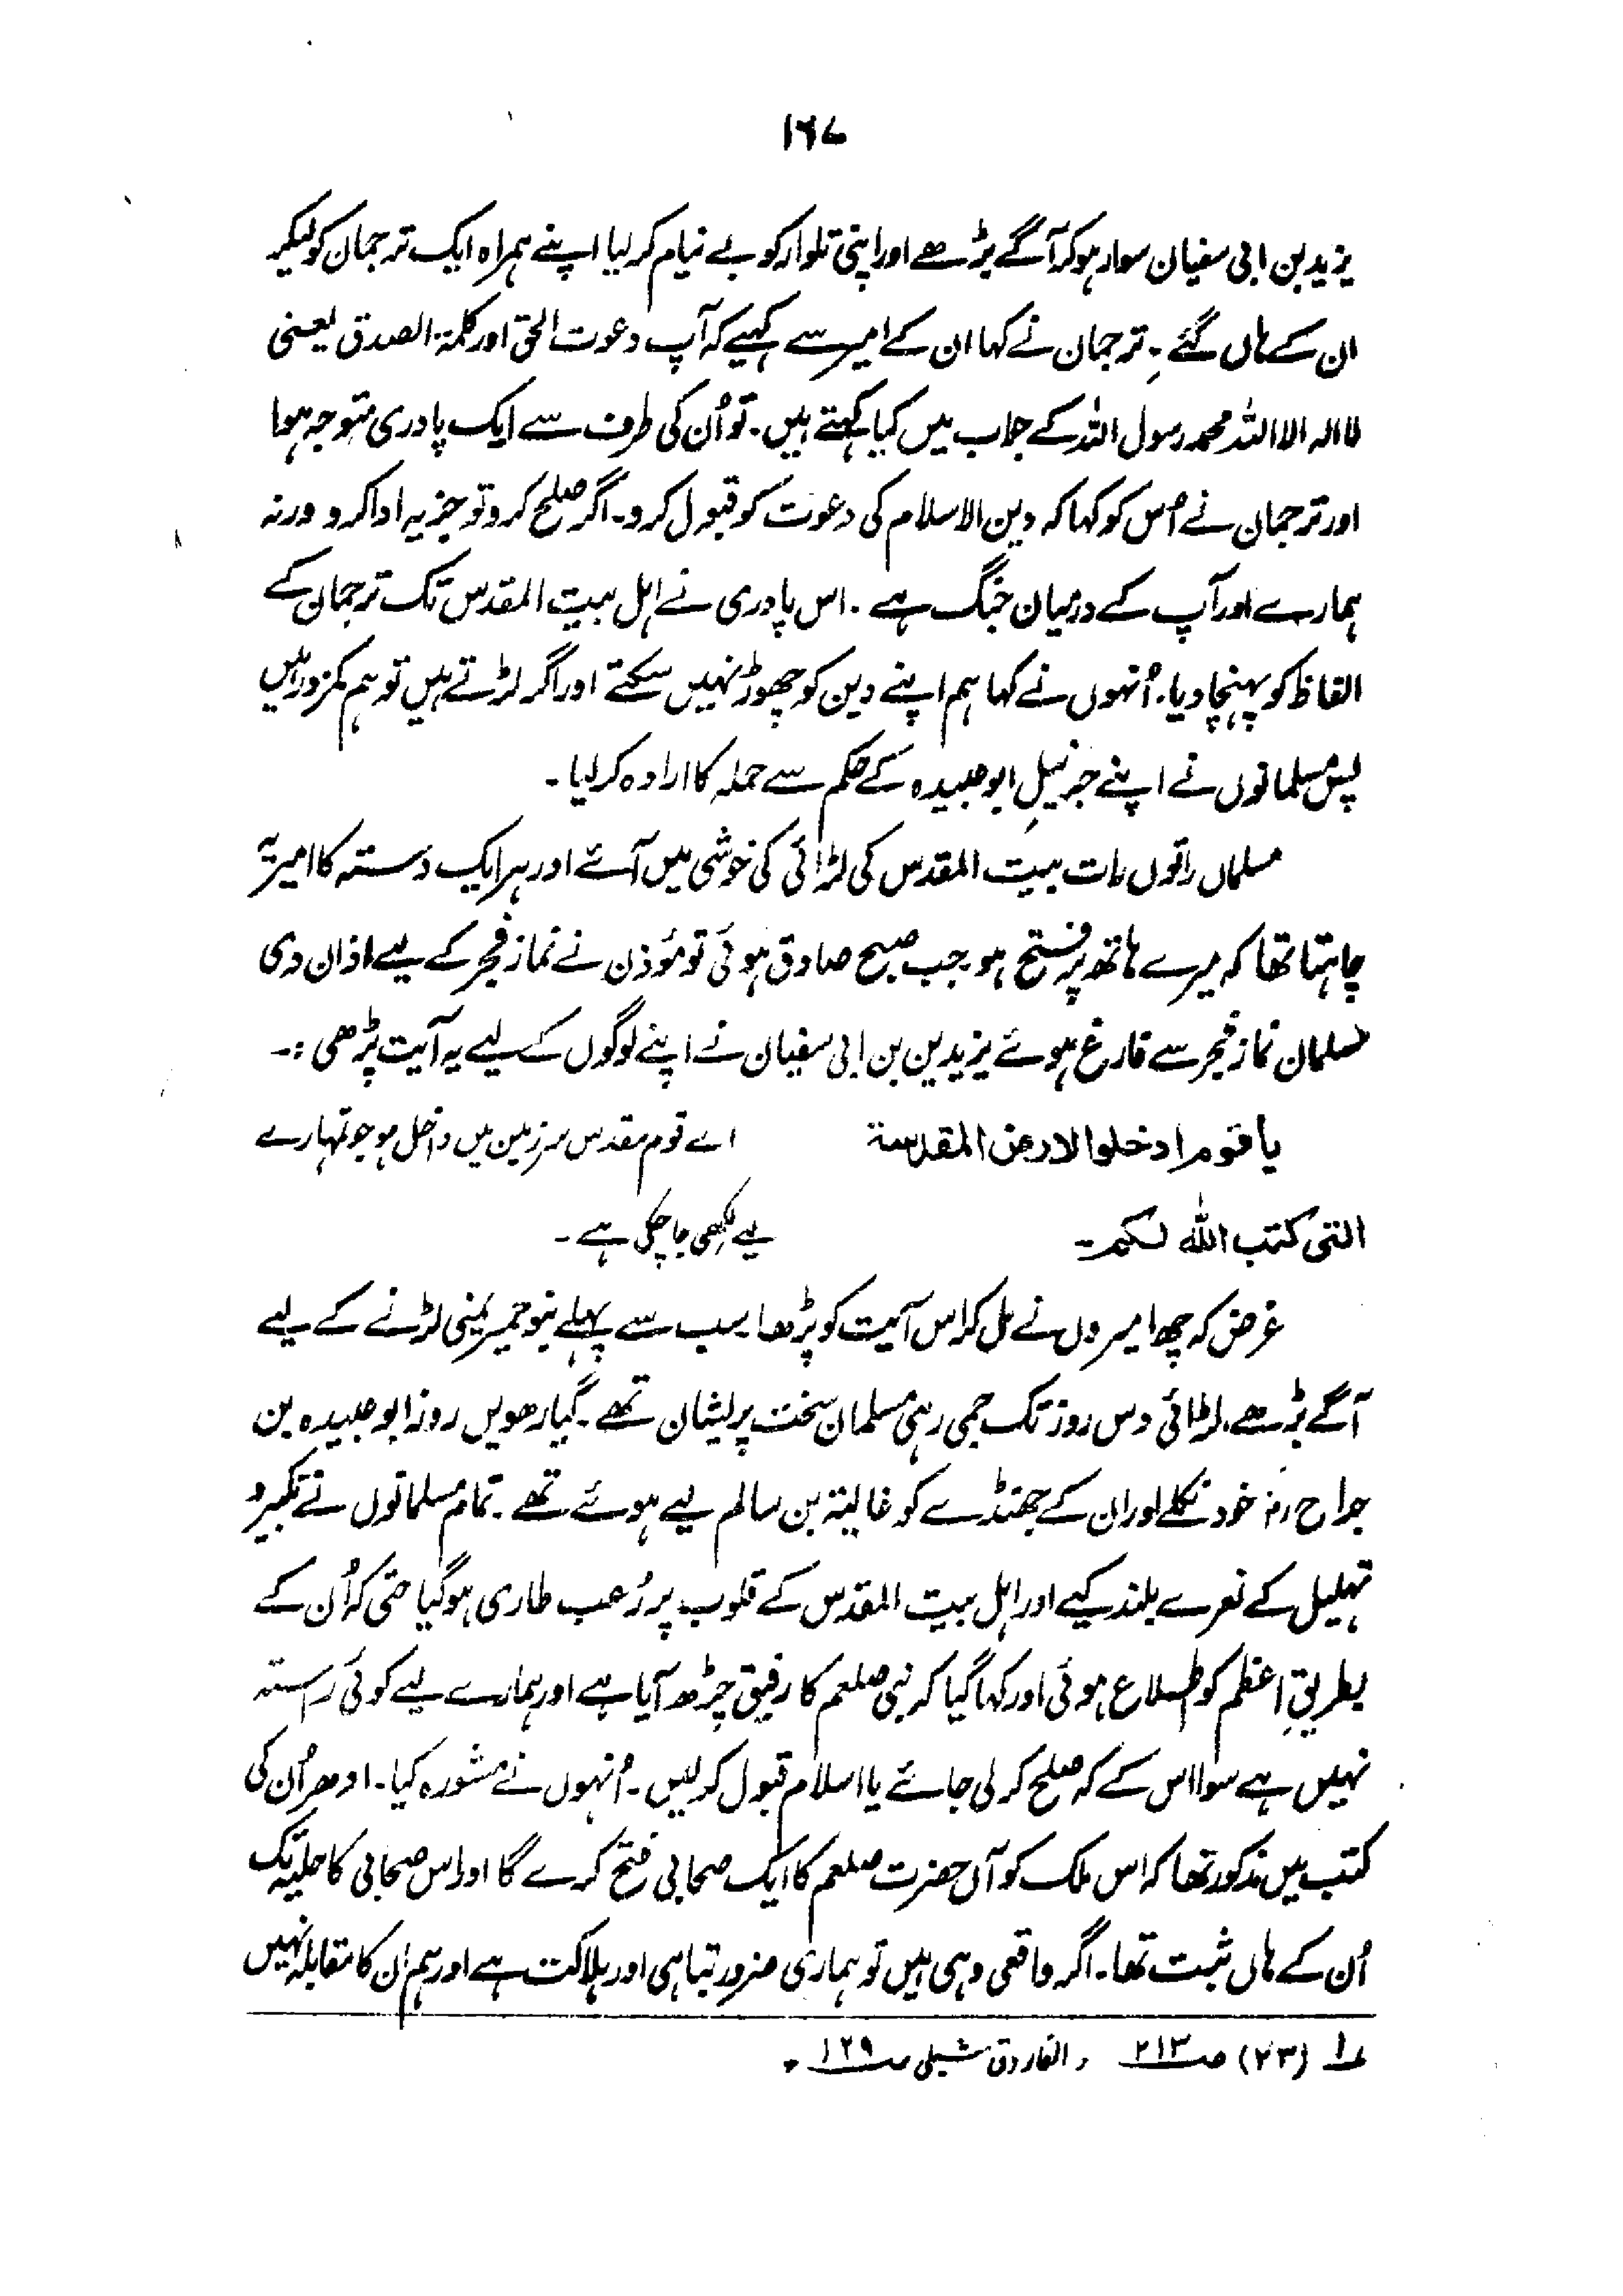 ۱۶۷
یزید بن ابی سفیان سوار ہوکر آگے بڑھے اور اپنی تلوار کو بے نیام کر لیا اپنے ہمراہ ایک ترجمان کو لیکر
ان کے ہاں گئے۔ ترجمان نے کہا ان کے امیر سے کہیے کہ آپ دعوت الحق اور کلمۃ الصدق یعنی
لا الہ الا اللہ محمد رسول اللہ کے جواب میں کیا کہتے ہیں۔ تو اُن کی طرف سے ایک پادری متوجہ ہوا
اور ترجمان نے اُس کو کہا کہ دین الاسلام کی دعوت کو قبول کرو۔ اگر صلح کرو تو جزیہ ادا کرو ورنہ
ہمارے اور آپ کے درمیان جنگ ہے۔ اس پادری نے اہل بیت المقدس تک ترجمان کے
الفاظ کو پہنچا دیا۔ اُنہوں نے کہا ہم اپنے دین کو چھوڑ نہیں سکتے اور اگر لڑتے ہیں تو ہم کمزور ہیں
پس مسلمانوں نے اپنے جرنیلِ ابو عبیدہ کے حکم سے حملہ کا ارادہ کر لیا۔
مسلماں راتوں رات بیت المقدس کی لڑائی کی خوشی میں آئے اور ہر ایک دستہ کا امیر یہ
چاہتا تھا کہ میرے ہاتھ پر فتح ہو۔ جب صبح صادق ہوئی تو مؤذن نے نماز فجر کے لیے اذان دی
مسلمان نماز فجر سے فارغ ہوئے یزید بن بن ابی سفیان نے اپنے لوگوں کے لیے یہ آیت پڑھی :۔
یا قوم ادخلوا الارض المقدسۃ اے قوم مقدس سرزمین میں داخل ہو جو تمہارے
التی کتب اللہ لکم۔ لیے لکھی جا چکی ہے۔
غرض کہ چھ امیروں نے مل کر اس آیت کو پڑھا۔ سب سے پہلے بنو حمیر یمنی لڑنے کے لیے
آگے بڑھے۔ لڑائی دس روز تک جمی رہی مسلمان سخت پریشان تھے۔ گیارھویں روز ابو عبیدہ بن
جراح رضؓ خود نکلے اور ان کے جھنڈے کو غالیۃ بن سالم لیے ہوئے تھے۔ تمام مسلمانوں نے تکبیر و
تہلیل کے نعرے بلند کیے اور اہل بیت المقدس کے قلوب پر رُعب طاری ہوگیا حتیٰ کہ اُن کے
بطریقِ اعظم کو اطلاع ہوئی اور کہا گیا کہ نبی صلعم کا رفیق چڑھ آیا ہے اور ہمارے لیے کوئی راستہ
نہیں ہے سوا اس کے کہ صلح کر لی جائے یا اسلام قبول کر لیں۔ اُنہوں نے مشورہ کیا۔ ادھر اُن کی
کتب میں مذکور تھا کہ اس ملک کو آں حضرت صلعم کا ایک صحابی فتح کرے گا اور اس صحابی کا حلیہ تک
اُن کے ہاں ثبت تھا۔ اگر واقعی وہی ہیں تو ہماری ضرور تباہی اور ہلاکت ہے اور ہم ان کا مقابلہ نہیں
؎۱ (۲۳) صـ ۲۱۳ ، الفاروق شبلی صـ ۱۲۹ ۔